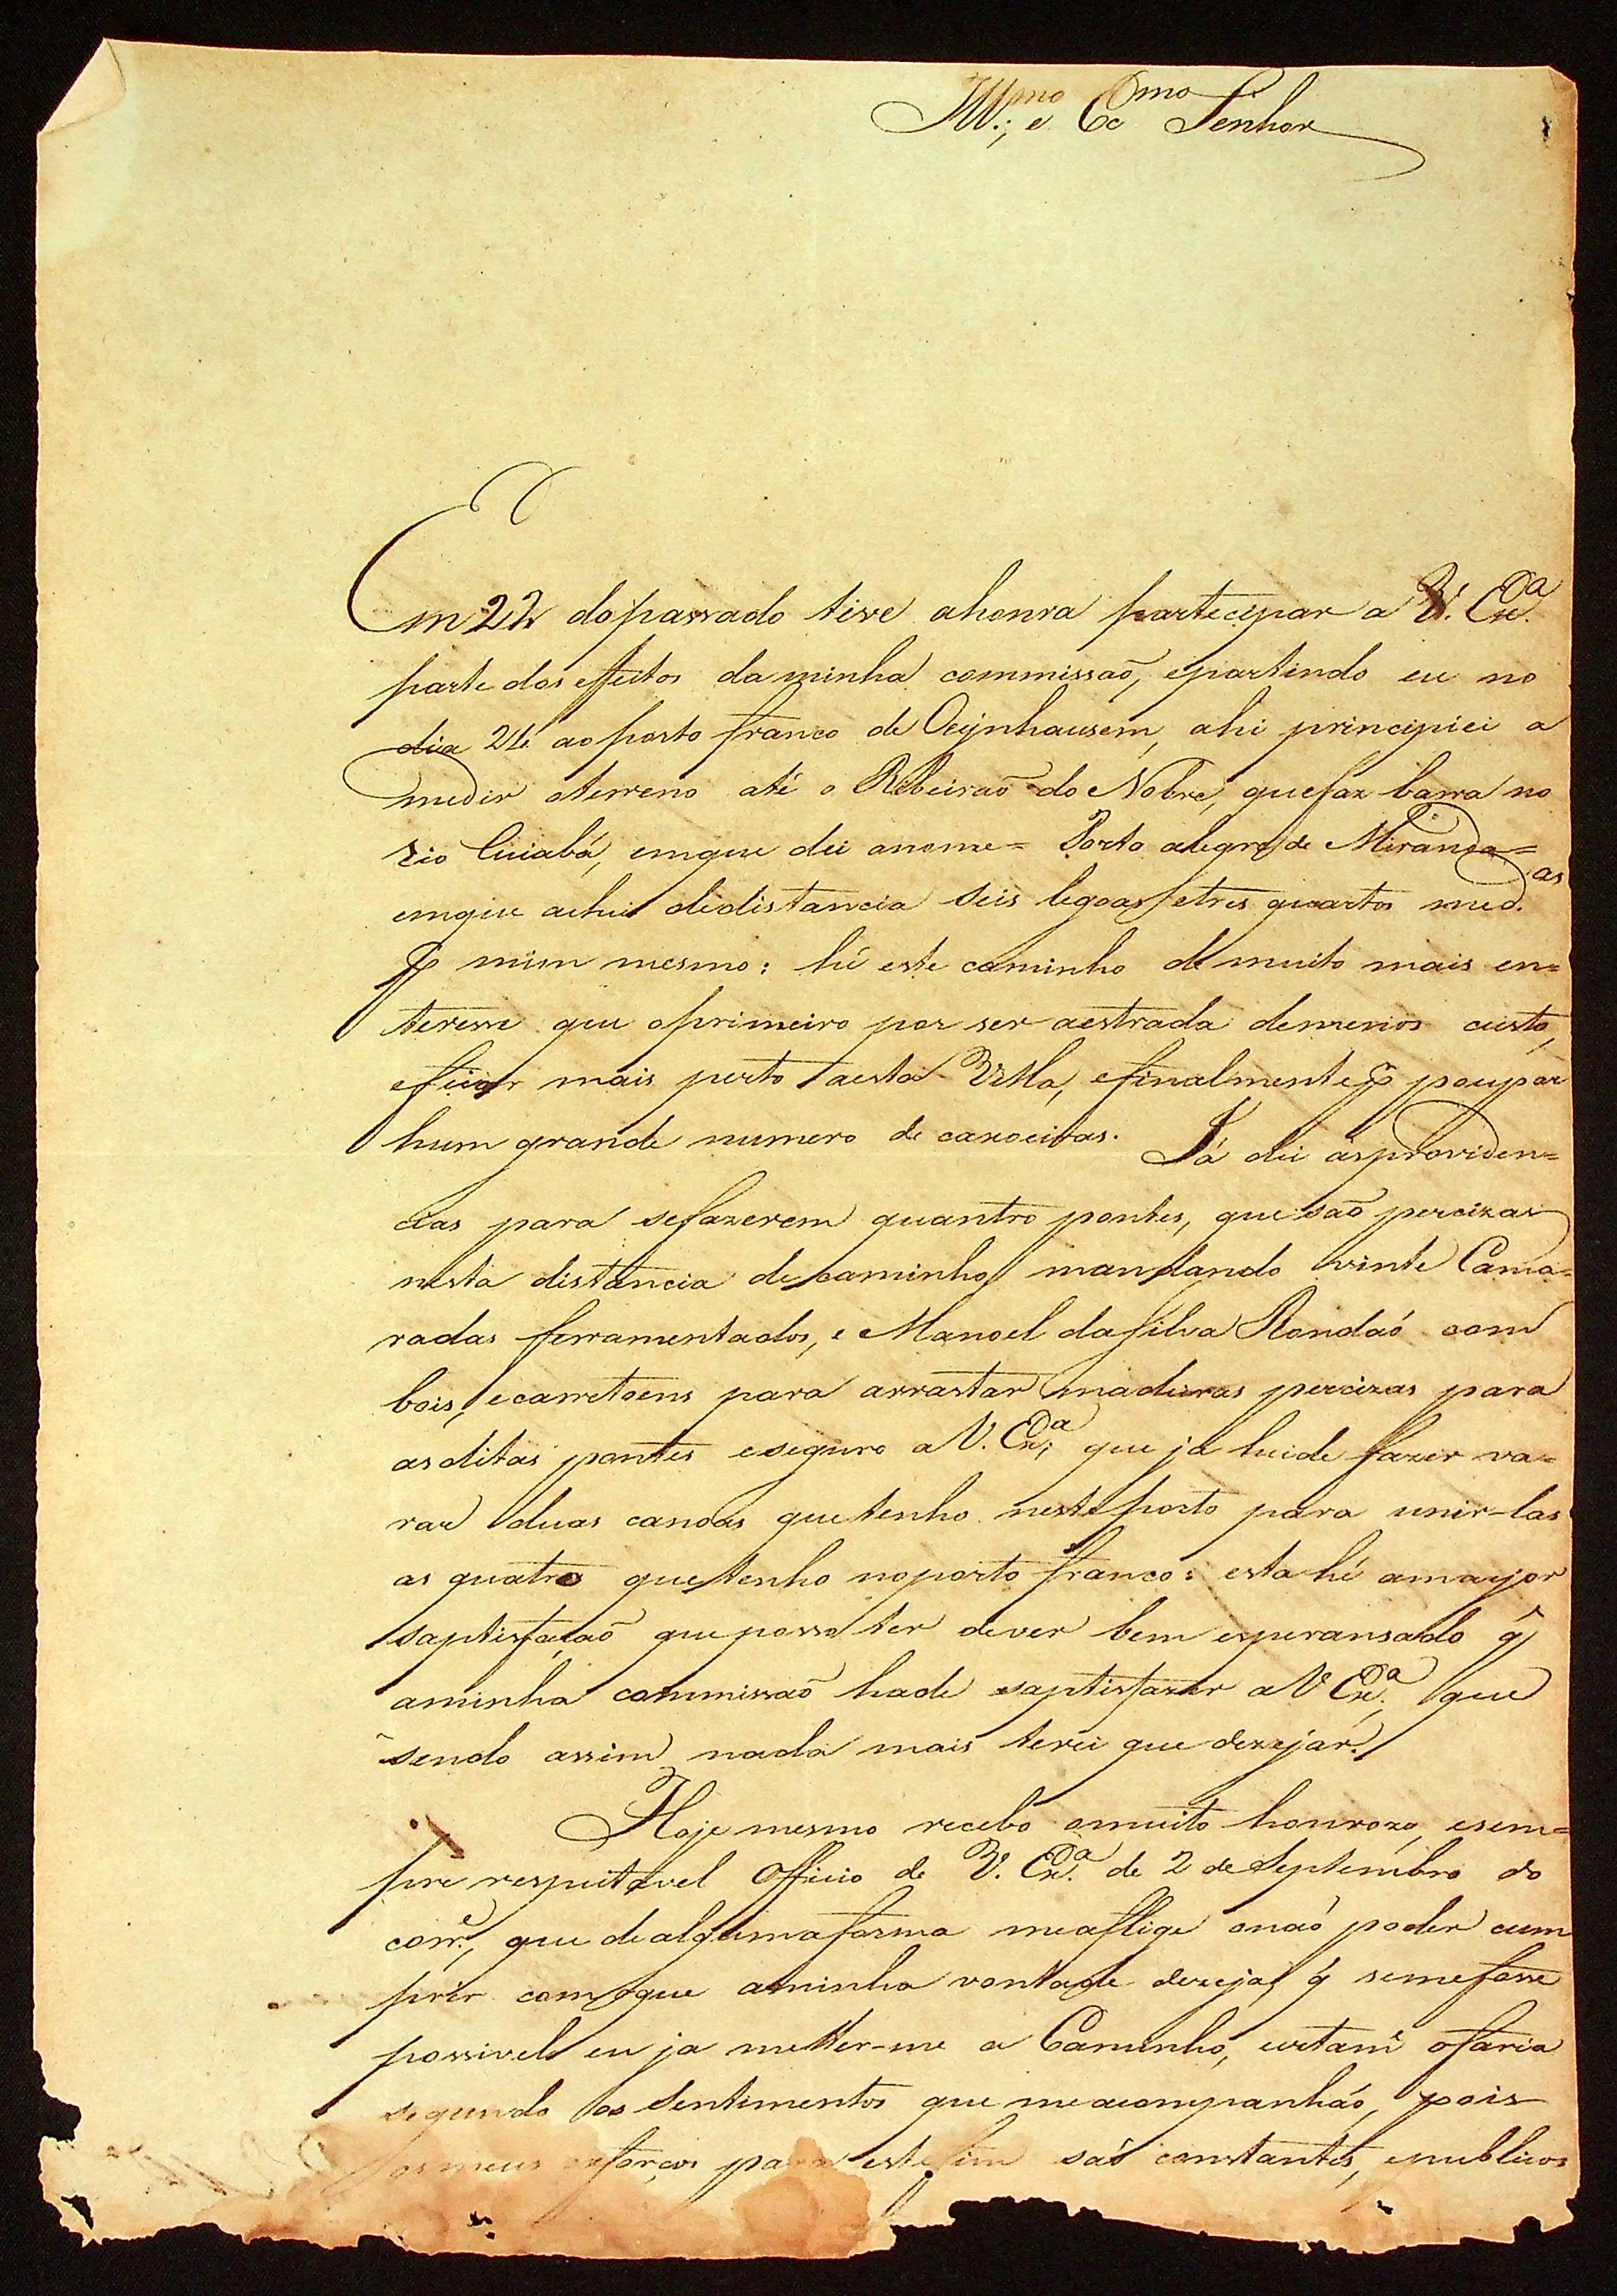 Ill.mo e Ex.mo Senhor
Em 22 do passado tive ahonra partecipar a V. Ex.a
parte dos effeitos da minha commissaõ, epartindo eu no
dia 24 ao porto franco de Oeijnhausem, ahi principiei a
medir oterreno até o Ribeiraõ do Nobre, quefaz barra no
rio Cuiabá, emque dei onome = Porto alegre de Miranda =
emque achei dedistancia seis legoas etres quartos med.as
p mim mesmo: hé este caminho de muito mais en=
teresse que oprimeiro por ser aestrada demenos custo,
eficar mais perto aesta Villa, efinalmente p poupar
hum grande numero de caxoeiras. Já dei asproviden=
cias para sefazerem quantro pontes, que saõ percizas
nesta distancia de caminho mandando vinte Cama=
radas ferramentados, e Manoel dasilva Rondaó com
bois, ecarretoens para arrastar madeiras percizas para
asditas pontes eseguro a V. Ex.a; que ja heide fazer va=
rar duas canoas quetenho nesteporto para unir-las
as quatro quetenho noporto franco: esta hé amayor
saptisfaçaõ que posso ter dever bem esperansado q̃
aminha commissaõ hade saptisfazer a V Ex.a, que
sendo assim nada mais terei que dezejár.
Hoje mesmo recebo omuito honrozo, esem=
pre respeitavel Officio de V. Ex.a de 2 de Septembro do
corr.e, que dealgumaforma meaflige onaó poder cum
prir comoque aminha vontade dezeja, q̃ semefosse
possivel eu ja metter-me a Caminho, ofaria
segundo os Sentimentos que meacompanháo, pois
osmeus exforços para estefim saó constantes, epublicos